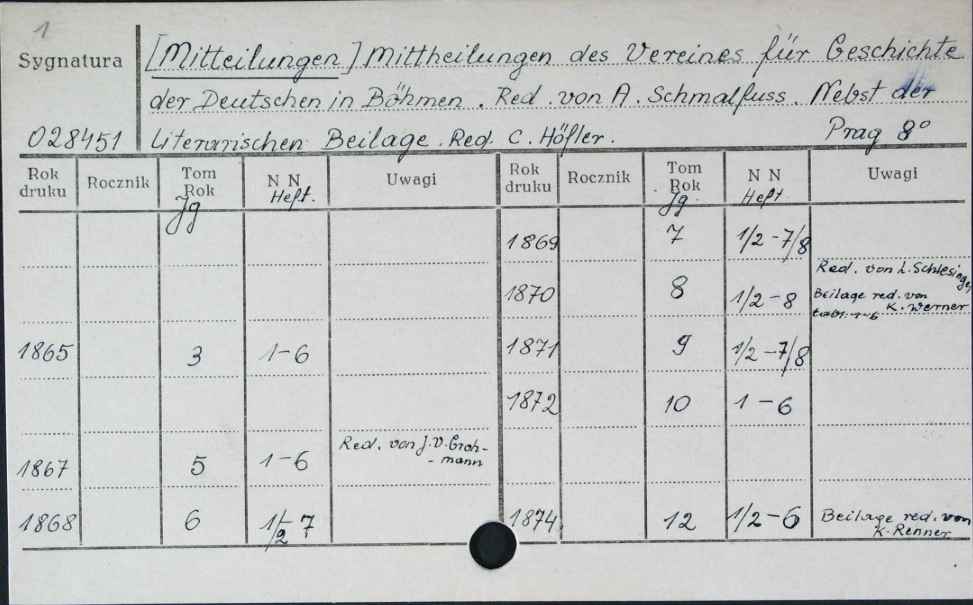 1
Sygnatura
[Mitteilungen] Mittheilungen des Vereines für Geschichte
der Deutschen in Böhmen. Red. von A. Schmalfuss. Nebst der
028451
Literarischen Beilage. Red. C. Höfler.
Prag 8°
Rok druku Rocznik Tom Rok Jg N N Heft. Uwagi Rok druku Rocznik Tom Rok Jg. N N Heft. Uwagi
1869 7 1/2-7/8
1870 8 1/2-8 Red. von L. Schlesinger
Beilage red. von
K. Werner
1865 3 1-6 1871 9 1/2-7/8
1872 10 1-6
1867 5 1-6 Red. von J. V. Groh-
-mann
1868 6 1/2 7 1874. 12 1/2-6 Beilage red. von
K. Renner